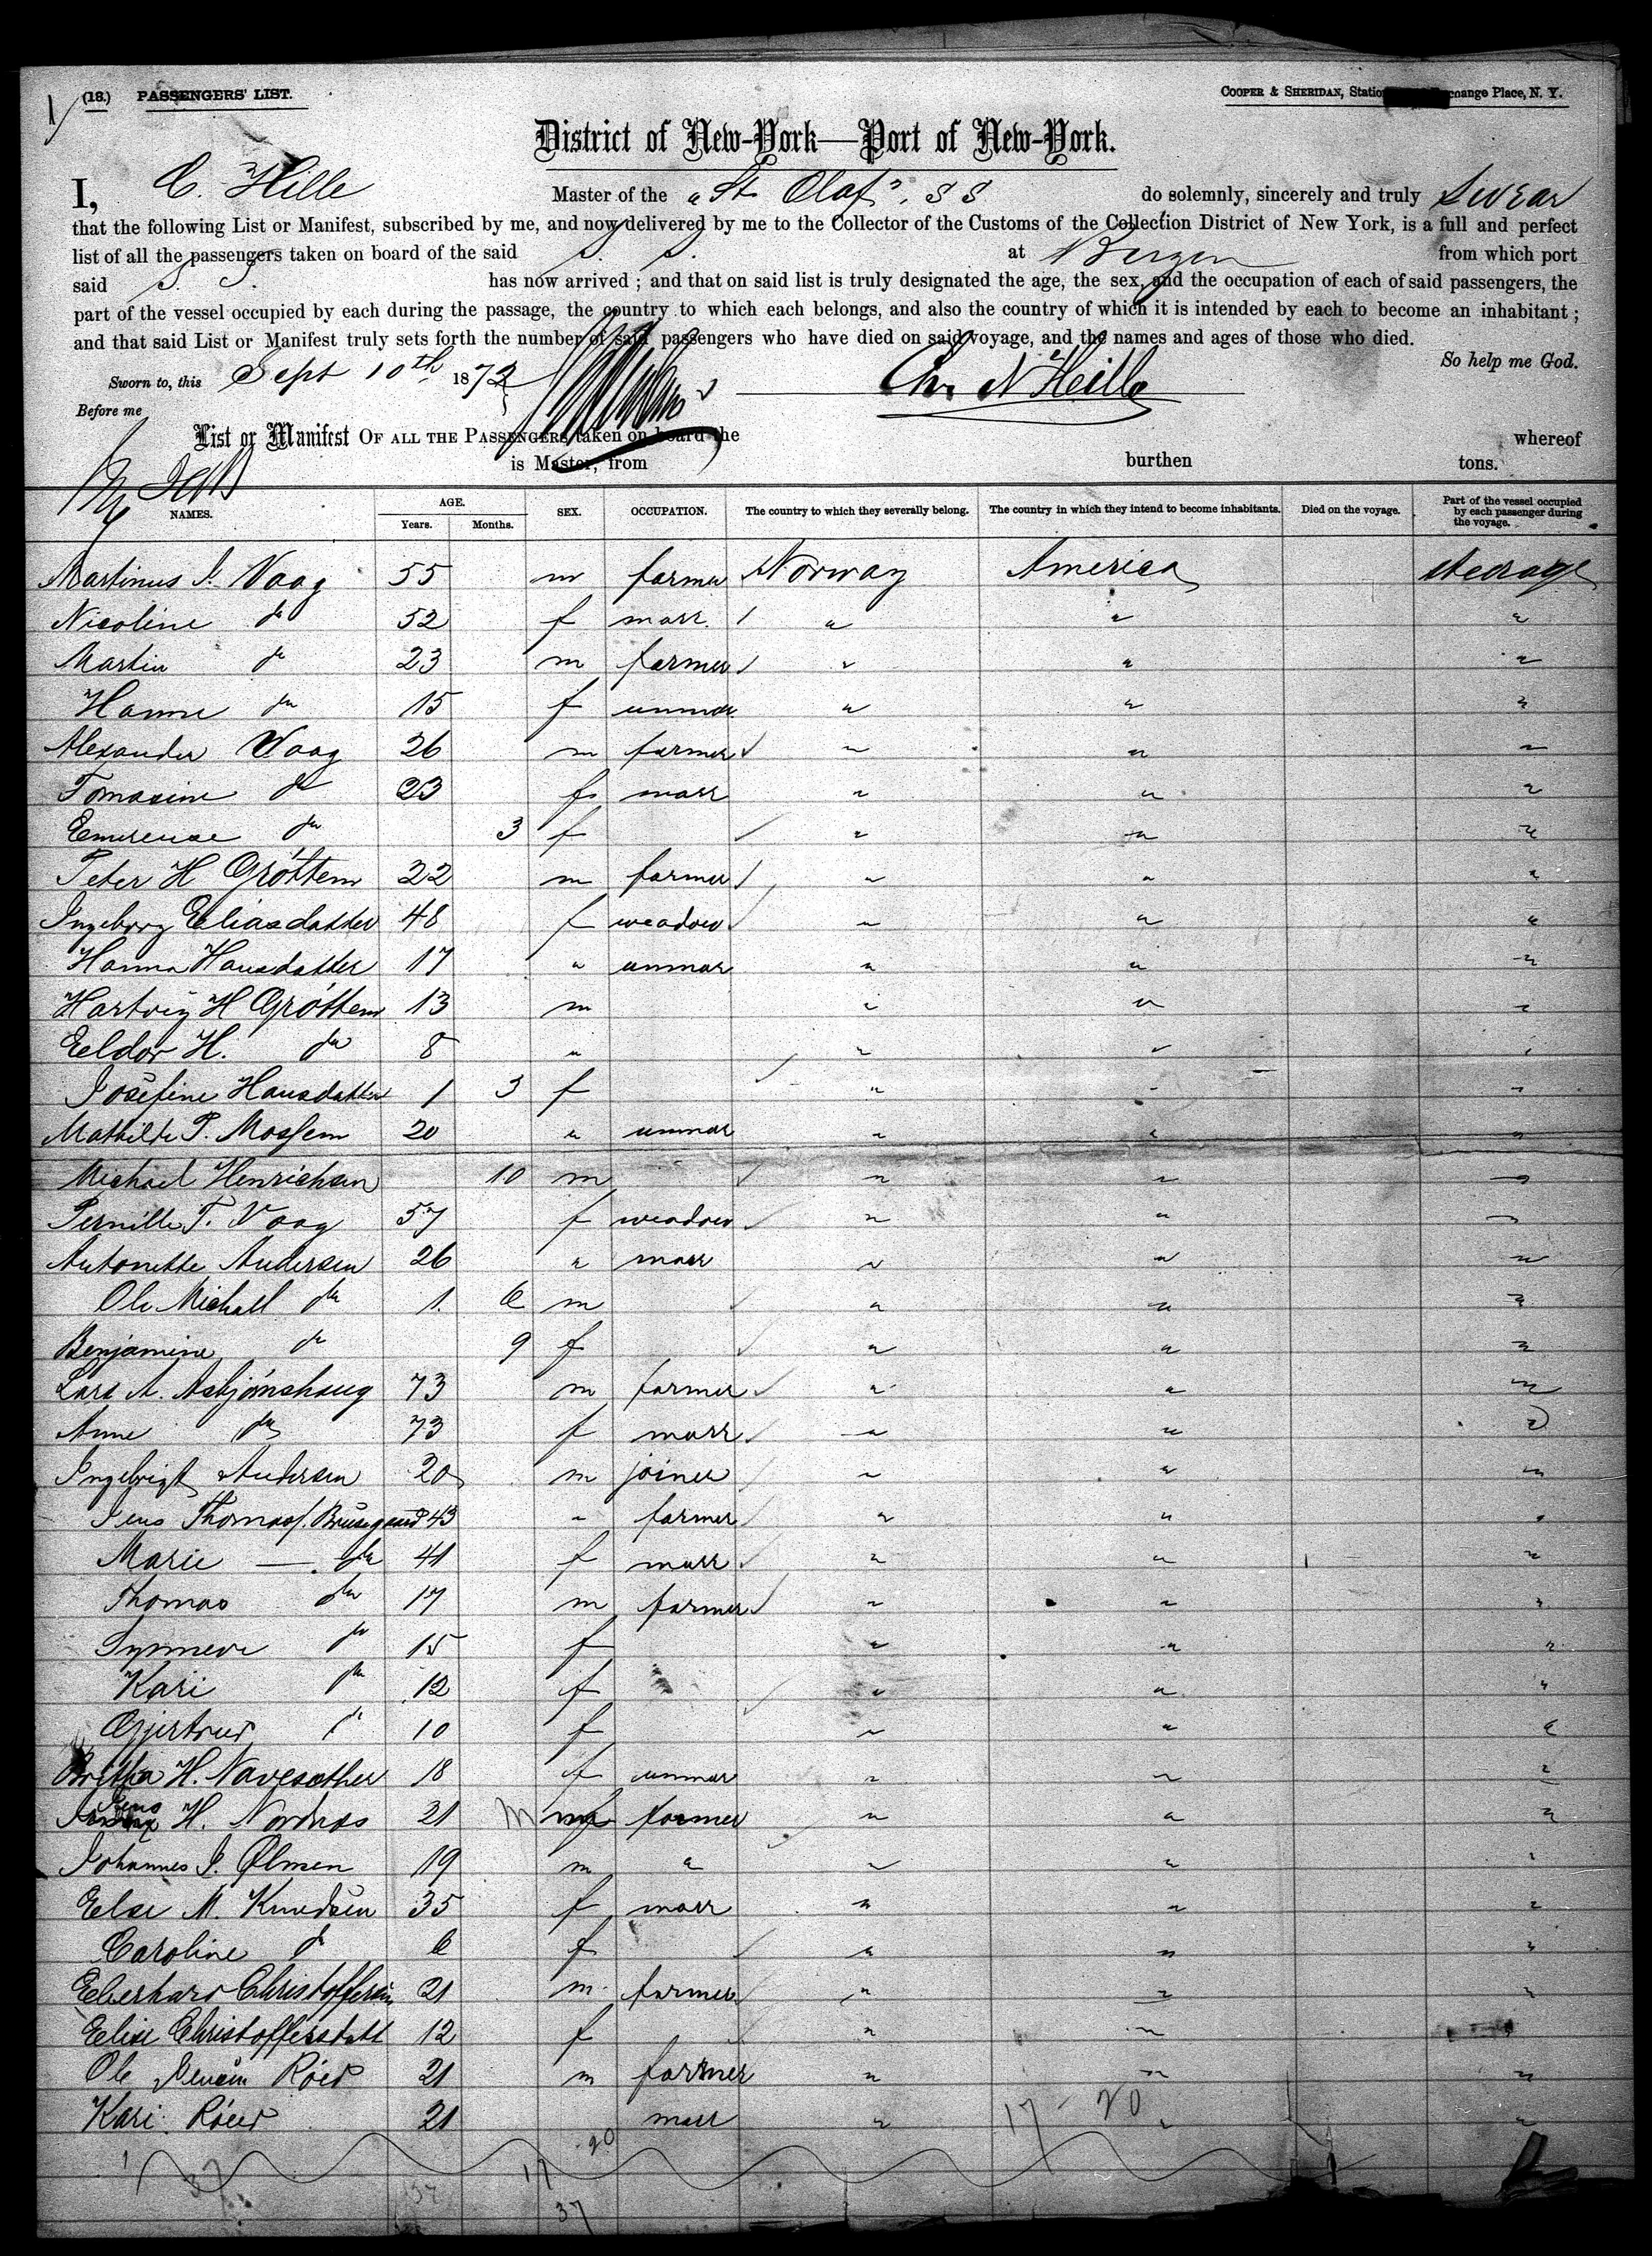 (18.) PASSENGERS' LIST.
COOPER & SHERIDAN, Place, N. Y.
District of New-York—Port of New-York.
I, C. Hille Master of the "St. Olaf", S S do solemnly, sincerely and truly Swear
that the following List or Manifest, subscribed by me, and now delivered by me to the Collector of the Customs of the Collection District of New York, is a full and perfect
list of all the passengers taken on board of the said S. S. at Bergen from which port
said S. S. has now arrived; and that on said list is truly designated the age, the sex, and the occupation of each of said passengers, the
part of the vessel occupied by each during the passage, the country to which each belongs, and also the country of which it is intended by each to become an inhabitant;
and that said List or Manifest truly sets forth the number of said passengers who have died on said voyage, and the names and ages of those who died.
So help me God.
Sworn to, this Sept 10th 1872 Chr N Hille
Before me
List or Manifest OF ALL THE PASSENGERS taken on board the whereof
is Master, from burthen tons.
NAMES. AGE. Years. Months. SEX. OCCUPATION. The country to which they severally belong. The country in which they intend to become inhabitants. Died on the voyage. Part of the vessel occupied by each passenger during the voyage.
Martinus I. Vaag 55 m farmer Norway America steerage
Nicoline do 52 f marr. " " "
Martin do 23 m farmer " " "
Hanne do 15 f unmar " " "
Alexander Vaag 26 m farmer " " "
Tomasine do 23 f marr " " "
Emerense do 3 f " " "
Peter H Gróttem 22 m farmer " " "
Ingeborg Eliasdatter 48 f weadow " " "
Hanna Hansdatter 17 " unmar " " "
Hartvig H Gróttem 13 m " " "
Eeldor H. do 8 " " " "
Josefine Hansdatter 1 3 f " " "
Mathilde P. Mossem 20 " unmar " " "
Michael Henriksen 10 m " " "
Pernille T. Vaag 57 f weadow " " "
Antonette Andersen 26 " marr " " "
Ole Michall do 1 6 m " " "
Benjamine do 9 f " " "
Lars A. Asbjörnshaug 73 m farmer " " "
Anne do 73 f marr " " "
Ingebrigt Andersen 20 m joiner " " "
Jens Thomass. Brusegaard 43 " farmer " " "
Marie — do 41 f marr " " "
Thomas do 17 m farmer " " "
Synneve do 15 f " " "
Kari do 12 f " " "
Gjertrud do 10 f " " "
Britha H. Navesather 18 f unmar " " "
Jens H. Nordnos 21 m farmer " " "
Johannes J. Ølmen 19 m " " " "
Else M. Knudsen 35 f marr " " "
Caroline do 6 f " " "
Eberhard Christoffersen 21 m farmer " " "
Elise Christoffersdatt 12 f " " "
Ole Róed 21 m farmer " " "
Kari Róed 21 marr " " "
17 - 20
20
37 37 17
37